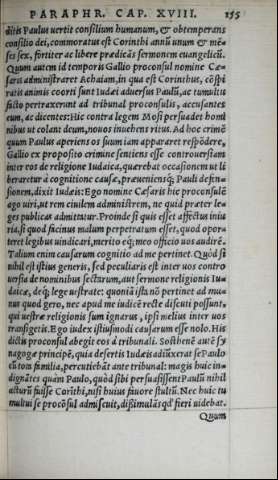 PARAPHR. CAP. XVIII. 155
ditis Paulus uertit consilium humanum, & obtemperans
consilio dei, commoratus est Corinthi annū unum & mē-
ses sex, fortiter ac libere prædicās sermonem euangelicū.
Quum autem id temporis Gallio proconsul nomine Cæ-
saris administraret Achaiam, in qua est Corinthus, cōspi
ratis animis coorti sunt Iudæi aduersus Paulū, ac tumultu
facto pertraxerunt ad tribunal proconsulis, accusantes
eum, ac dicentes: Hic contra legem Mosi persuadet homi
nibus ut colant deum, nouos inuehens ritus. Ad hoc crimē
quum Paulus aperiens os suum iam appararet respōdere,
Gallio ex proposito crimine sentiens esse controuersiam
inter eos de religione Iudaica, quærebat occasionem ut li
beraretur à cognitione causæ, præueniensq; Pauli defen-
sionem, dixit Iudæis: Ego nomine Cæsaris hic proconsulē
ago uiri, ut rem ciuilem administrem, ne quid præter le-
ges publicas admittatur. Proinde si quis esset affectus iniu
ria, si quod facinus malum perpetratum esset, quod opor-
teret legibus uindicari, merito eq; meo officio uos audirē.
Talium enim causarum cognitio ad me pertinet. Quòd si
nihil est istius generis, sed peculiaris est inter uos contro
uersia de nominibus sectarum, aut sermone religionis Iu-
daicæ, deq; lege uestrate: quoniā ista nō pertinet ad mu-
nus quod gero, nec apud me iudicē recte discuti possunt,
qui uestræ religionis sum ignarus, ipsi melius inter uos
transigetis. Ego iudex istiusmodi causarum esse nolo. His
dictis proconsul abegit eos à tribunali. Sosthenē autē sy
nagogæ principē, quia desertis Iudæis adiūxerat se Paulo
cū tota familia, percutiebāt ante tribunal: magis huic in-
dignātes quàm Paulo, quòd sibi persuasissent Paulū nihil
acturū fuisse Corīthi, nisi huius fauore fultū. Nec huic tu
multui se procōsul admiscuit, dissimulās qd' fieri uidebat.
Quum